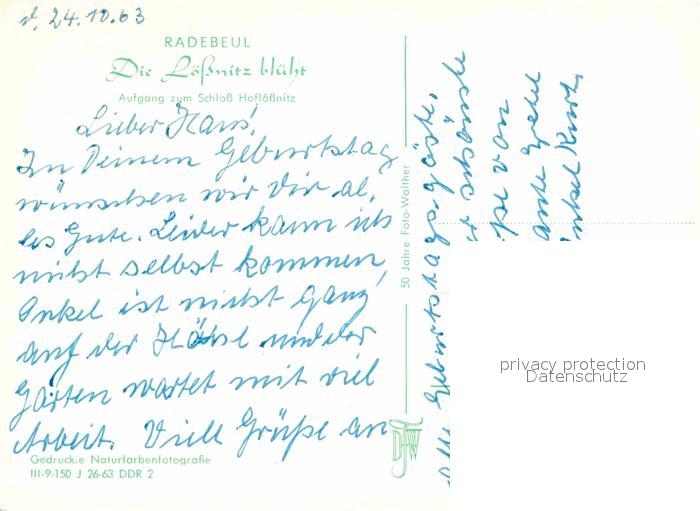 d. 24.10.63
RADEBEUL
Die Lößnitz blüht
Aufgang zum Schloß Hoflößnitz
Lieber Hans!
Zu Deinem Geburtstag
wünschen wir Dir al,
les Gute. Leider kann ich
nicht selbst kommen,
Onkel ist nicht ganz
auf der Höhe und der
Garten wartet mit viel
Arbeit. Viele Grüße an
Geburtstagsgäste,
schönste
von
Onkel Kurt.
50 Jahre Foto-Walther
Gedruckte Naturfarbenfotografie
III-9-150 J 26-63 DDR 2
privacy protection
Datenschutz